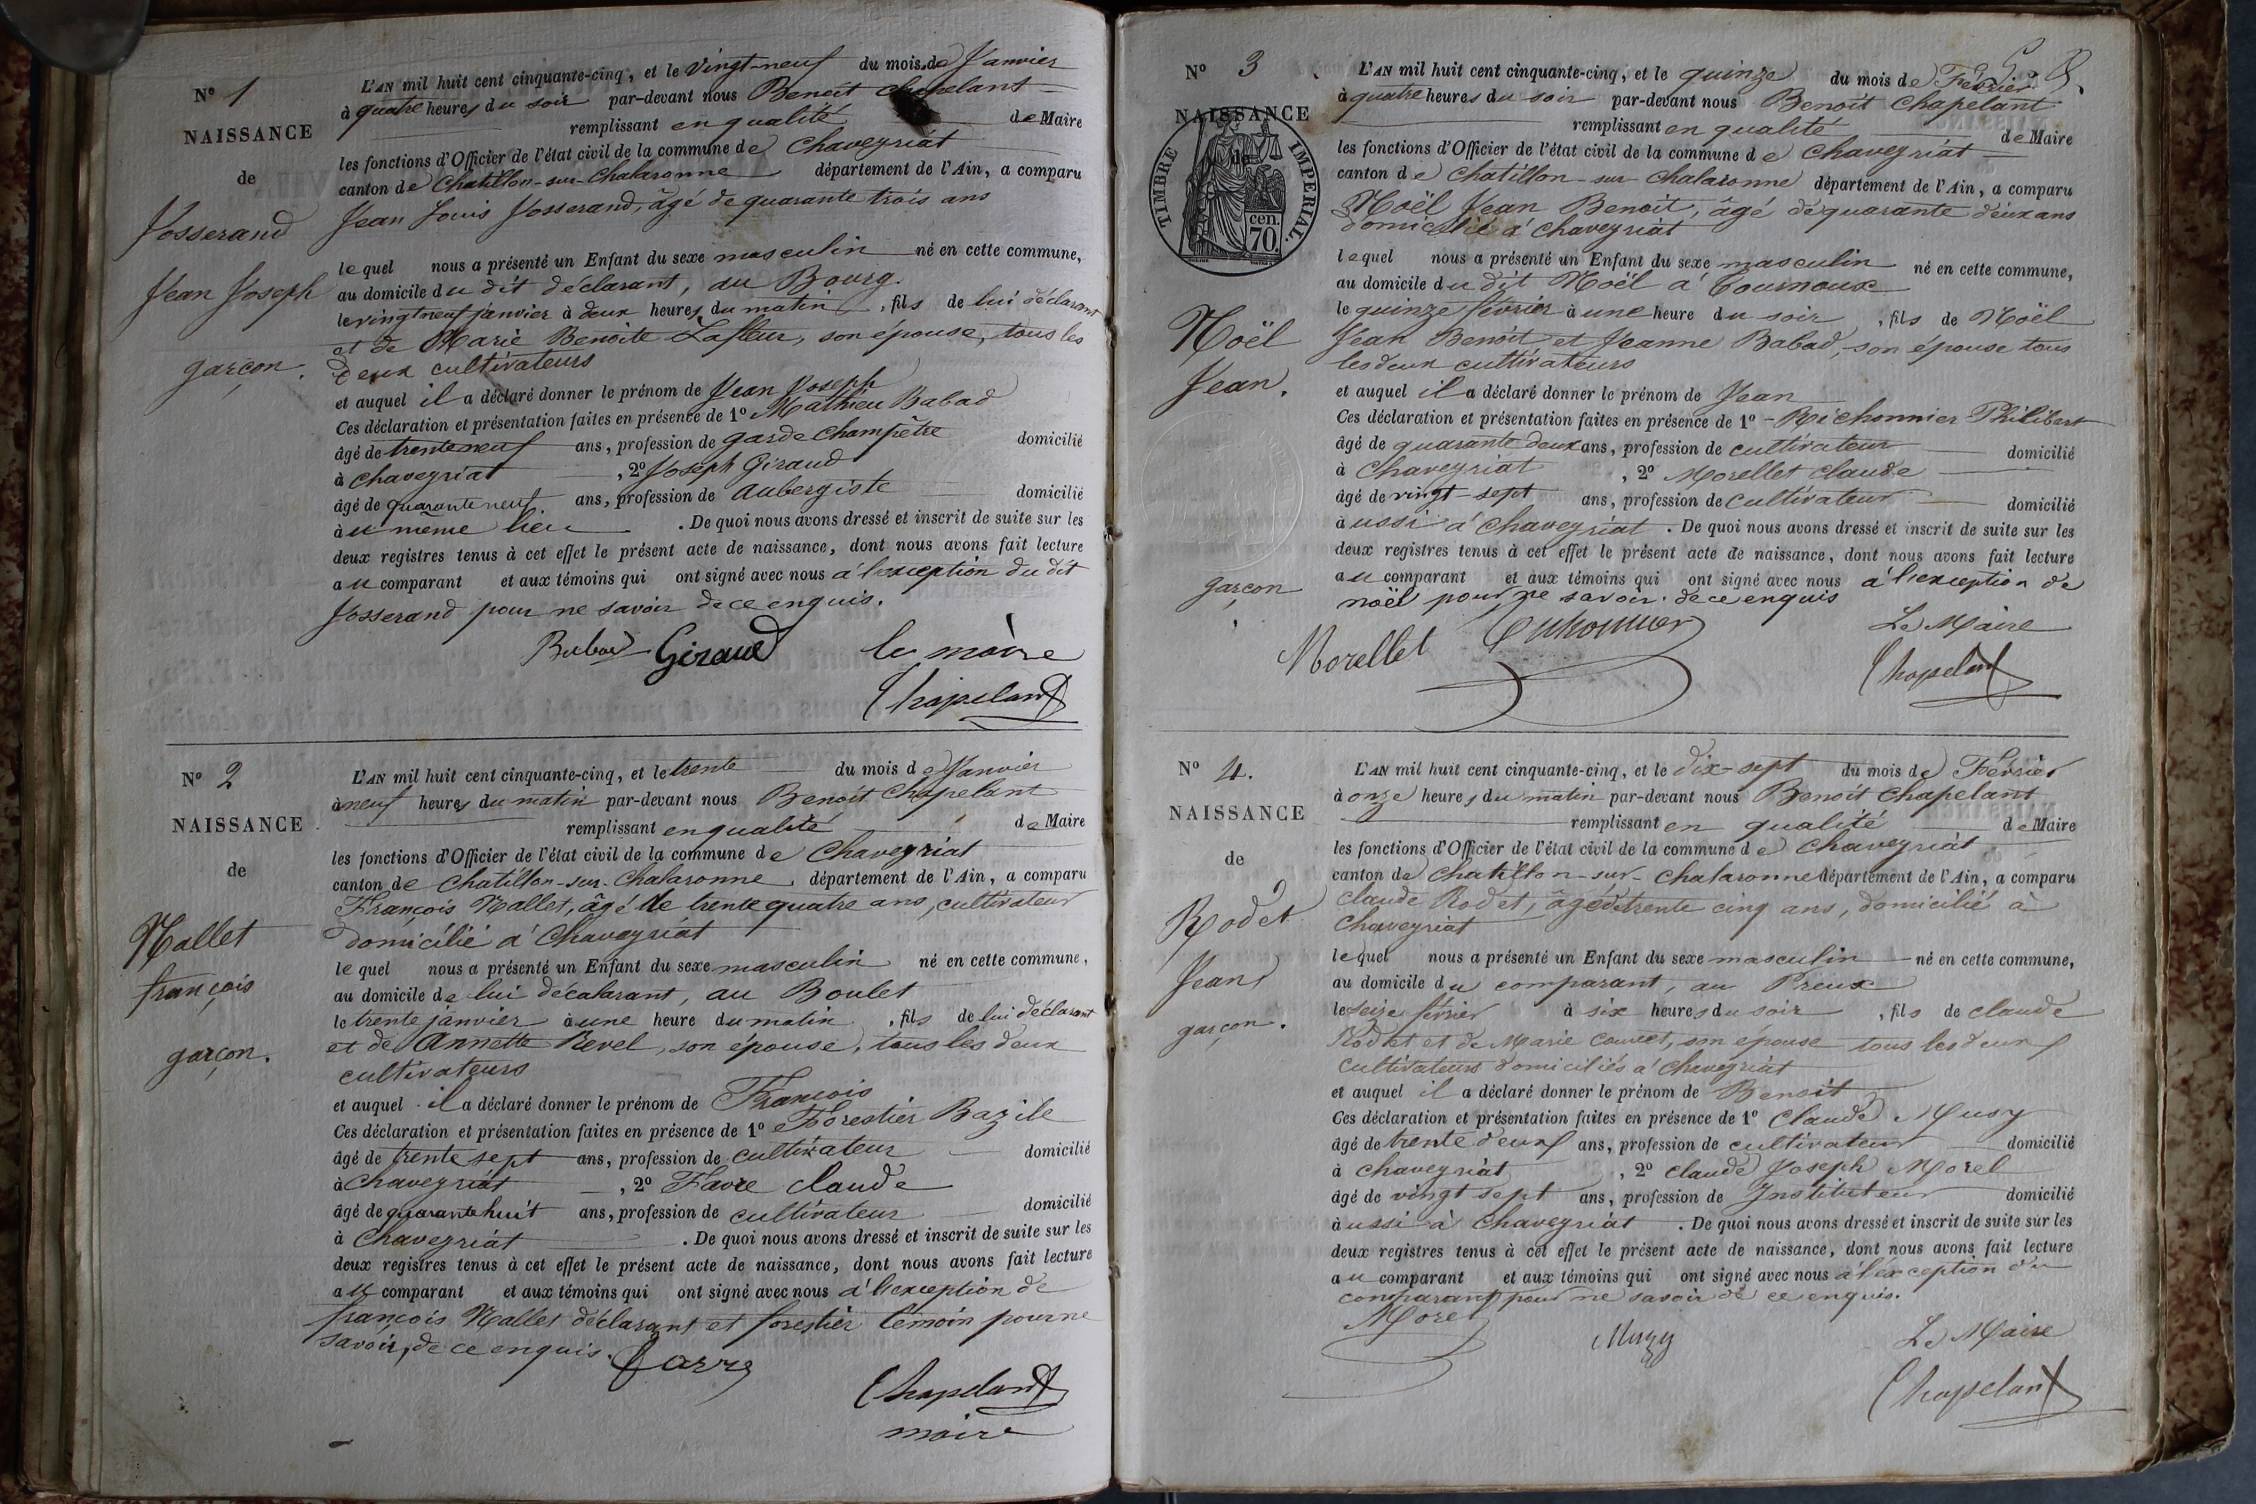 Nº 1
NAISSANCE
de
Josserand
Jean Joseph
garçon.
L'AN mil huit cent cinquante-cinq, et le vingt-neuf du mois de Janvier
à quatre heures du soir par-devant nous Benoit Chapelant
remplissant en qualité de Maire
les fonctions d'Officier de l'état civil de la commune de Chaveyriat
canton de Chatillon-sur-Chalaronne département de l'Ain, a comparu
Jean Louis Josserand, âgé de quarante trois ans
lequel nous a présenté un Enfant du sexe masculin né en cette commune,
au domicile du dit déclarant, au Bourg.
le vingt neuf janvier à deux heures du matin, fils de lui déclarant
et de Marie Benoite Lafleur, son épouse, tous les
deux cultivateurs
et auquel il a déclaré donner le prénom de Jean Joseph
Ces déclaration et présentation faites en présence de 1º Mathieu Babad
âgé de trente neuf ans, profession de garde champêtre domicilié
à chaveyriat, 2º Joseph Giraud
âgé de quarante neuf. ans, profession de aubergiste domicilié
au même lieu. De quoi nous avons dressé et inscrit de suite sur les
deux registres tenus à cet effet le présent acte de naissance, dont nous avons fait lecture
au comparant et aux témoins qui ont signé avec nous à l'exception du dit
Josserand pour ne savoir de ce enquis.
Babad Giraud le maire
Chapelant
Nº 2
NAISSANCE
de
Nallet
françois
garçon.
L'AN mil huit cent cinquante-cinq, et le trente du mois de Janvier
à neuf heures du matin par-devant nous Benoit Chapelant
remplissant en qualité de Maire
les fonctions d'Officier de l'état civil de la commune de Chaveyriat
canton de Chatillon-sur-Chalaronne département de l'Ain, a comparu
François Nallet, âgé de trente quatre ans, cultivateur
domicilié à Chaveyriat
lequel nous a présenté un Enfant du sexe masculin né en cette commune,
au domicile de lui décalarant, au Boulet
le trente janvier à une heure du matin, fils de lui déclarant
et de Annette Revel, son épouse, tous les deux
cultivateurs
et auquel il a déclaré donner le prénom de François
Ces déclaration et présentation faites en présence de 1º Forestier Bazile
âgé de trente sept ans, profession de cultivateur domicilié
à Chaveyriat, 2º Favre claude
âgé de quarante huit ans, profession de cultivateur domicilié
à Chaveyriat. De quoi nous avons dressé et inscrit de suite sur les
deux registres tenus à cet effet le présent acte de naissance, dont nous avons fait lecture
au comparant et aux témoins qui ont signé avec nous à l'exception de
françois Nallet déclarant et forestier témoin pour ne
savoir, de ce enquis. Favre
Chapelant
maire
Nº 3
NAISSANCE
de
TIMBRE IMPERIAL.
cen.
70.
Noël
Jean.
garçon
L'AN mil huit cent cinquante-cinq, et le quinze du mois de Février
à quatre heures du soir par-devant nous Benoit Chapelant
remplissant en qualité de Maire
les fonctions d'Officier de l'état civil de la commune de Chaveyriat
canton de Chatillon-sur-Chalaronne département de l'Ain, a comparu
Noël Jean Benoit, âgé de quarante deux ans
domicilié à Chaveyriat
lequel nous a présenté un Enfant du sexe masculin né en cette commune,
au domicile du dit Noël à Tournoux
le quinze février à une heure du soir, fils de Noël
Jean Benoit et Jeanne Babad, son épouse tous
les deux cultivateurs
et auquel il a déclaré donner le prénom de Jean
Ces déclaration et présentation faites en présence de 1º Richonnier Philibert
âgé de quarante deux ans, profession de cultivateur domicilié
à Chaveyriat, 2º Morellet claude
âgé de vingt-sept ans, profession de cultivateur domicilié
aussi à Chaveyriat. De quoi nous avons dressé et inscrit de suite sur les
deux registres tenus à cet effet le présent acte de naissance, dont nous avons fait lecture
au comparant et aux témoins qui ont signé avec nous à l'exception de
noël pour ne savoir. de ce enquis
Morellet Le Maire
Chapelant
Nº 4.
NAISSANCE
de
Rodet
Jean
garçon.
L'AN mil huit cent cinquante-cinq, et le dix-sept du mois de Février
à onze heures du matin par-devant nous Benoit Chapelant
remplissant en qualité de Maire
les fonctions d'Officier de l'état civil de la commune de Chaveyriat
canton de Chatillon-sur-Chalaronne département de l'Ain, a comparu
Claude Rodet, âgé de trente cinq ans, domicilié à
Chaveyriat
lequel nous a présenté un Enfant du sexe masculin né en cette commune,
au domicile du comparant, au Preux
le seize février à six heures du soir, fils de claude
Rodet et de Marie, son épouse tous les deux
cultivateurs domiciliés à Chaveyriat
et auquel il a déclaré donner le prénom de Benoit
Ces déclaration et présentation faites en présence de 1º Claude Musy
âgé de trente deux ans, profession de cultivateur domicilié
à Chaveyriat, 2º claude Joseph Morel
âgé de vingt sept ans, profession de Instituteur domicilié
aussi à Chaveyriat. De quoi nous avons dressé et inscrit de suite sur les
deux registres tenus à cet effet le présent acte de naissance, dont nous avons fait lecture
au comparant et aux témoins qui ont signé avec nous à l'exception du
comparant pour ne savoir de ce enquis.
Morel Muzy Le Maire
Chapelant